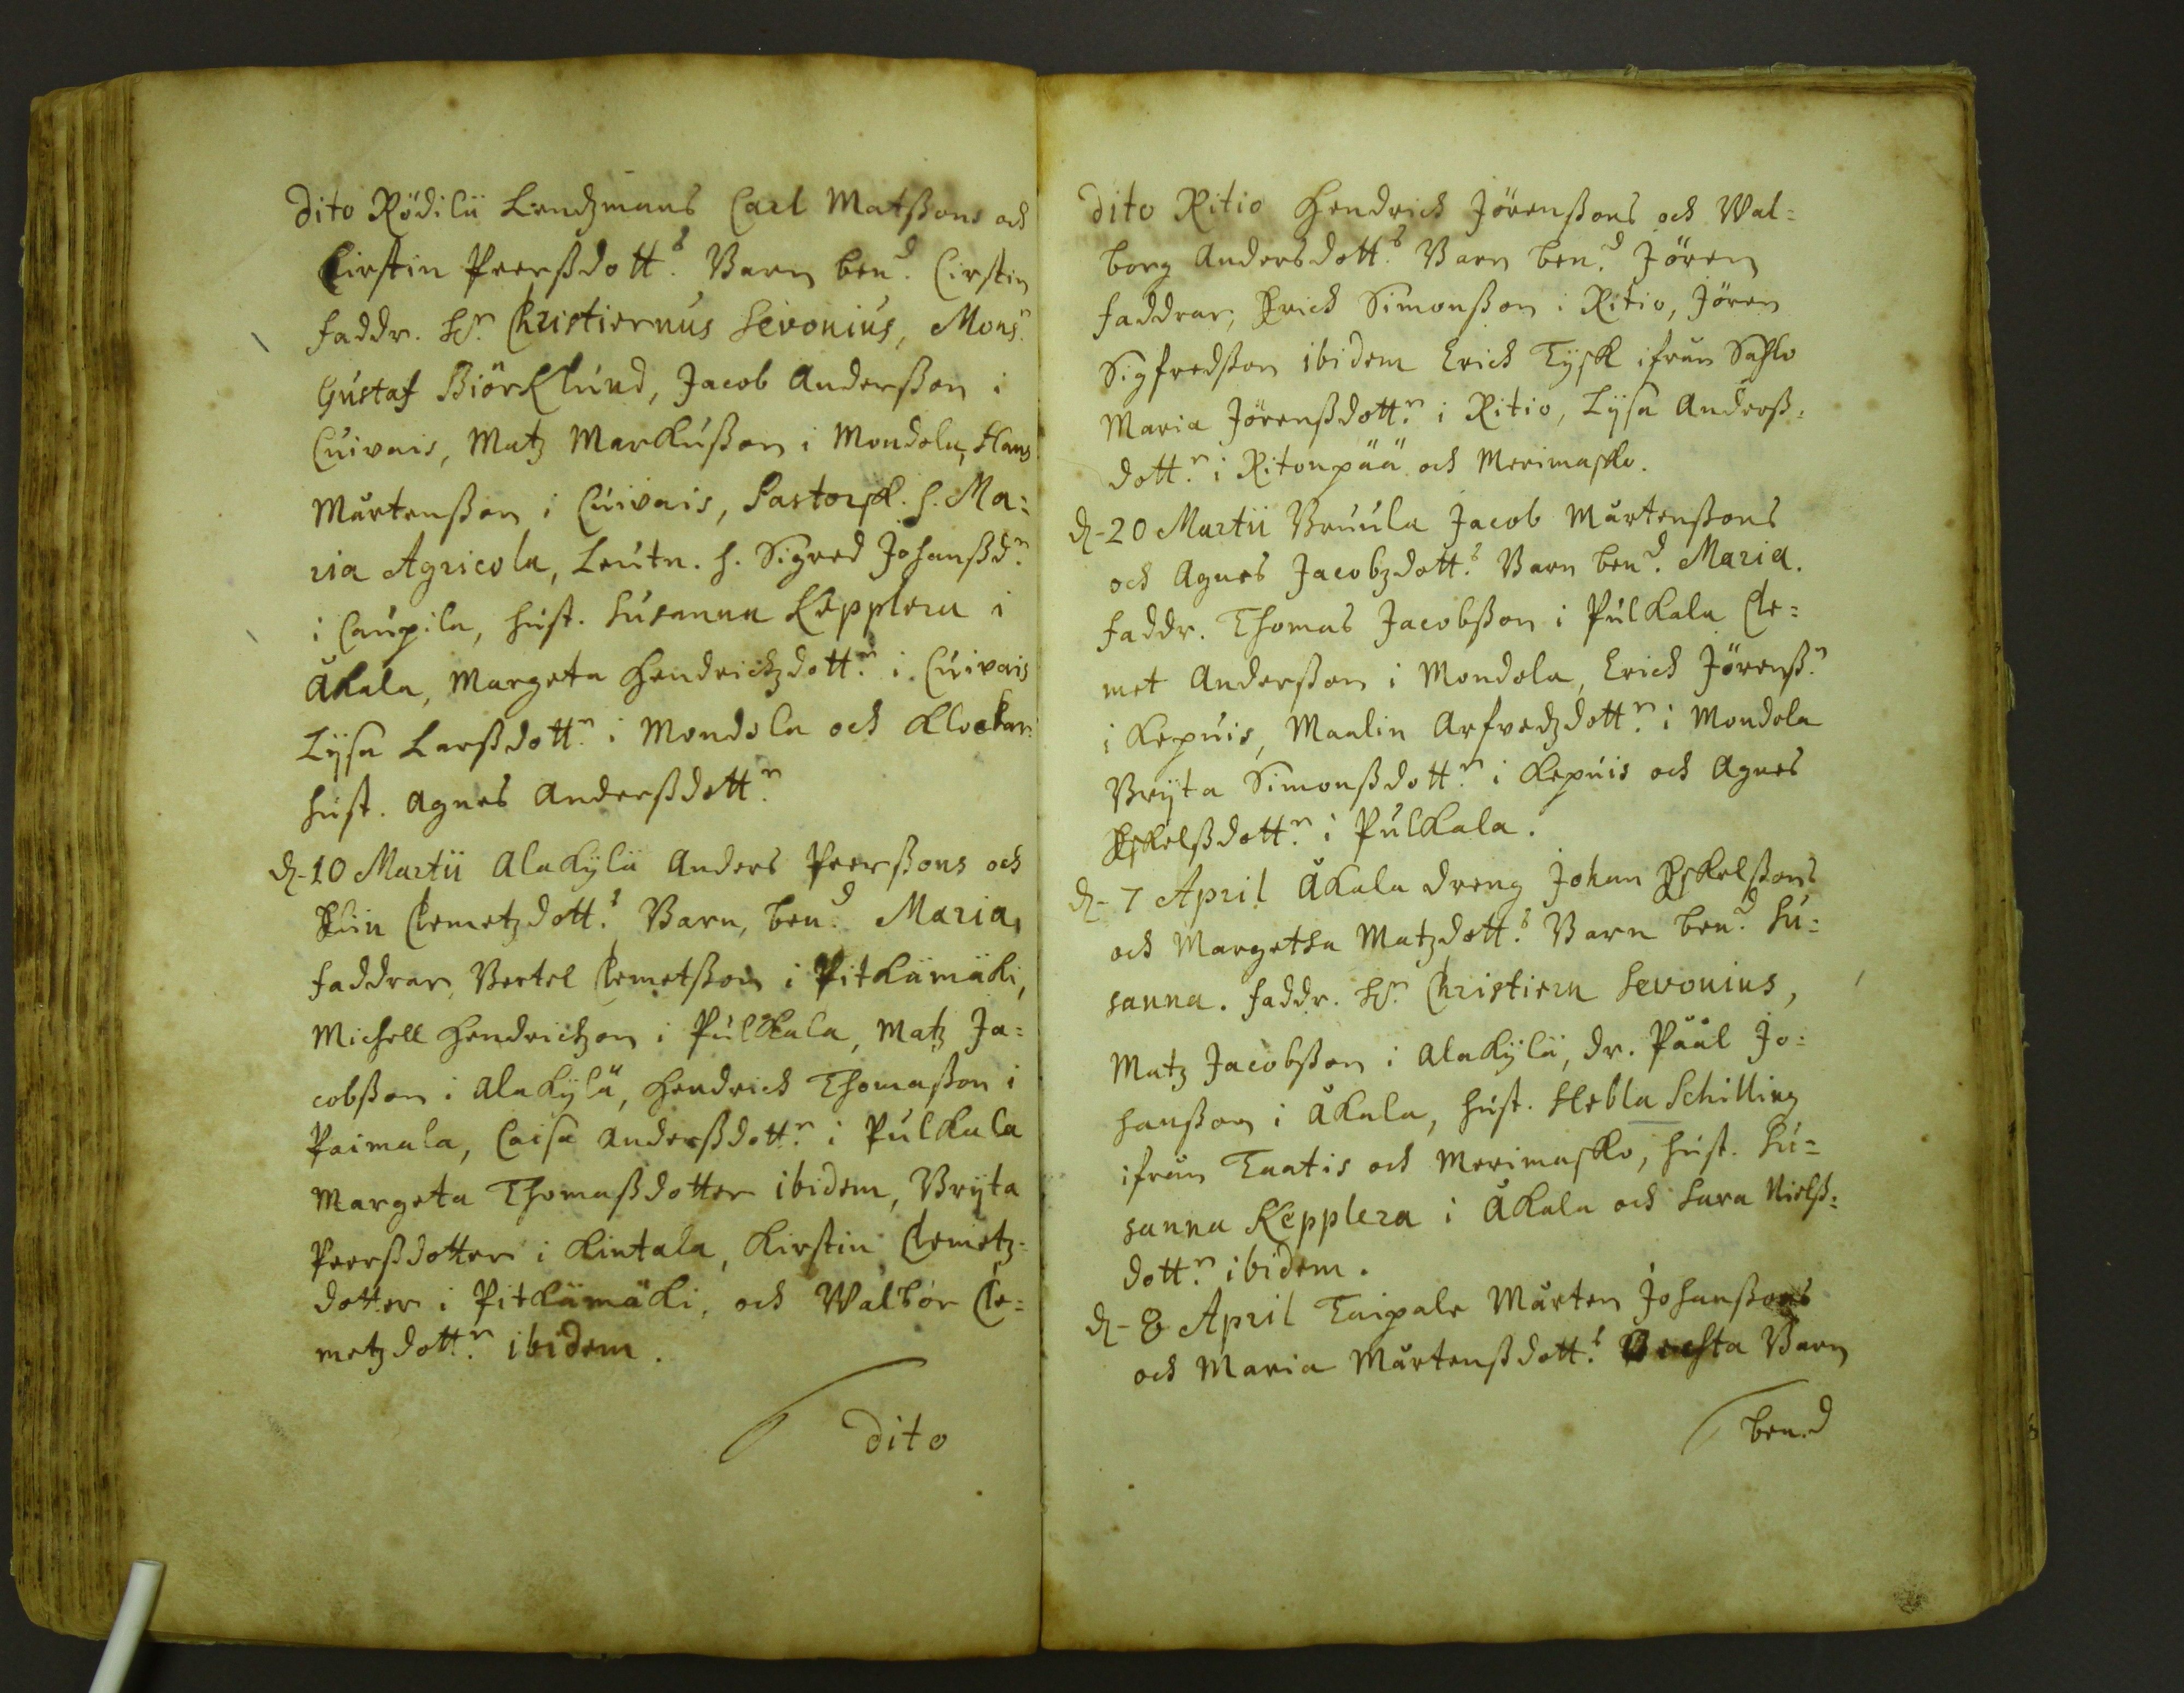 Dito Rödilä Lendzmans Carl Matßons och
Cirstin Peerßdott:s Barn ben:d Cirstin
faddr. H:r Christiernus Sevonius, Mons:r
Gustaf Biörklund, Jacob Anderßon i
Cuivais, Matz Markußon i Mondola, Hans
Mårtenßon i Cuivais, Pastorsk. h. Ma=
ria Agricola, Leutn. h. Sigred Johanßd:r
i Caupila, hust. Susanna Kepplera i
Åkala, Margeta Hendrichzdott:r i Cuivais
Lijsa Larßdott:r i Mondola och Klockar
hust. Agnes Anderßdott:r
d-10 Martii Alakylä Anders Peerßons och
Elin Clemetzdott:s Barn, ben:d Maria,
faddrar, Bertel Clemetßon i Pitkämäki,
Michell Hendrichzon i Pulkkala, Matz Ja=
cobßon i Alakylä, Hendrich Thomaßon i
Paimala, Caisa Anderßdott:r i Pulkala
Margeta Thomaßdotter ibidem, Brijta
Peerßdotter i Kintala, Kirstin Clemetz=
dotter i Pitkämäki, och Walbor Cle=
metzdott:r ibidem.
Dito
Dito Ritio Hendrich Jörenßons och Wal=
borg Andersdott:s Barn ben:d Jören
faddrar, Erich Simonßon i Ritio, Jören
Sigfredßon ibidem Erich Tysk ifrån Sahlo
Maria Jörenßdott:r i Ritio, Lijsa Anderß=
dott:r i Ritonpää och Merimasko.
d-20 Martii Bruula Jacob Mårtenßons
och Agnes Jacobzdott:s Barn ben:d Maria.
faddr. Thomas Jacobßon i Pulkala Cle=
met Anderßon i Mondola, Erich Jörenß:n
i Kepuis, Maalin Arfvedzdott:r i Mondola
Brijta Simonßdott:r i Kepuis och Agnes
Eskelßdott:r i Pulkala.
d-7 April Åkala dreng Johan Eskelßons
och Margetha Matzdott:s Barn ben:d Su=
sanna. faddr. H:r Christiern Sevonius,
Matz Jacobßon i Alakylä, dr. Påål Jo=
hanßon i Åkala, hust. Hebla Schilling
ifrån Taatis och Merimasko, hust. Su=
sanna Kepplera i Åkala och Sara Nielß=
dott:r ibidem.
d-8 April Taipale Mårten Johanßons
och Maria Mårtenßdott:s Barn
ben.d